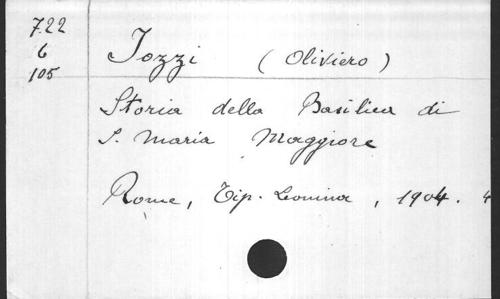 722
6
105
Jozzi (Oliviero)
Storia della Basilica di
S. Maria Maggiore
Rome, Tip. Leonina, 1904. 4